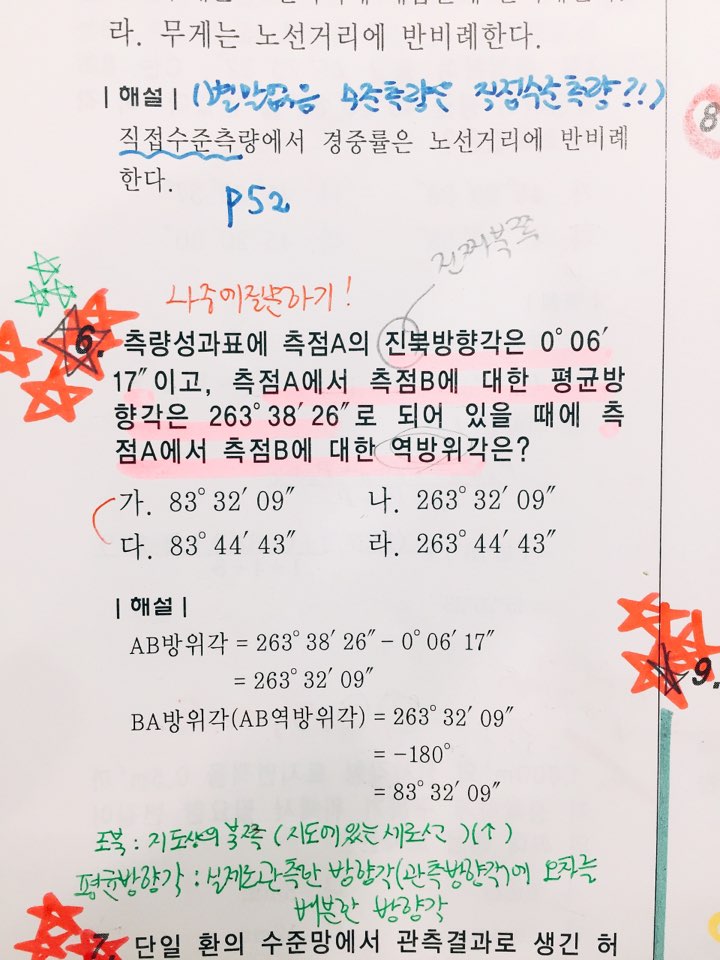 라. 무게는 노선거리에 반비례한다.
| 해설 | (별말없음 수준측량은 직접수준측량?!)
직접수준측량에서 경중률은 노선거리에 반비례
한다.
p52
진짜북쪽
나중에질문하기!
6. 측량성과표에 측점A의 진북방향각은 0° 06′
17″이고, 측점A에서 측점B에 대한 평균방
향각은 263° 38′ 26″로 되어 있을 때에 측
점A에서 측점B에 대한 역방위각은?
가. 83° 32′ 09″ 나. 263° 32′ 09″
다. 83° 44′ 43″ 라. 263° 44′ 43″
| 해설 |
AB방위각 = 263° 38′ 26″ − 0° 06′ 17″
= 263° 32′ 09″
BA방위각(AB역방위각) = 263° 32′ 09″
= −180°
= 83° 32′ 09″
도북 : 지도상의 북쪽 (지도에 있는 세로선)(↑)
평균방향각 : 실제로 관측한 방향각(관측방향각)에 오차를
배분한 방향각
7. 단일 환의 수준망에서 관측결과로 생긴 허
8
9.